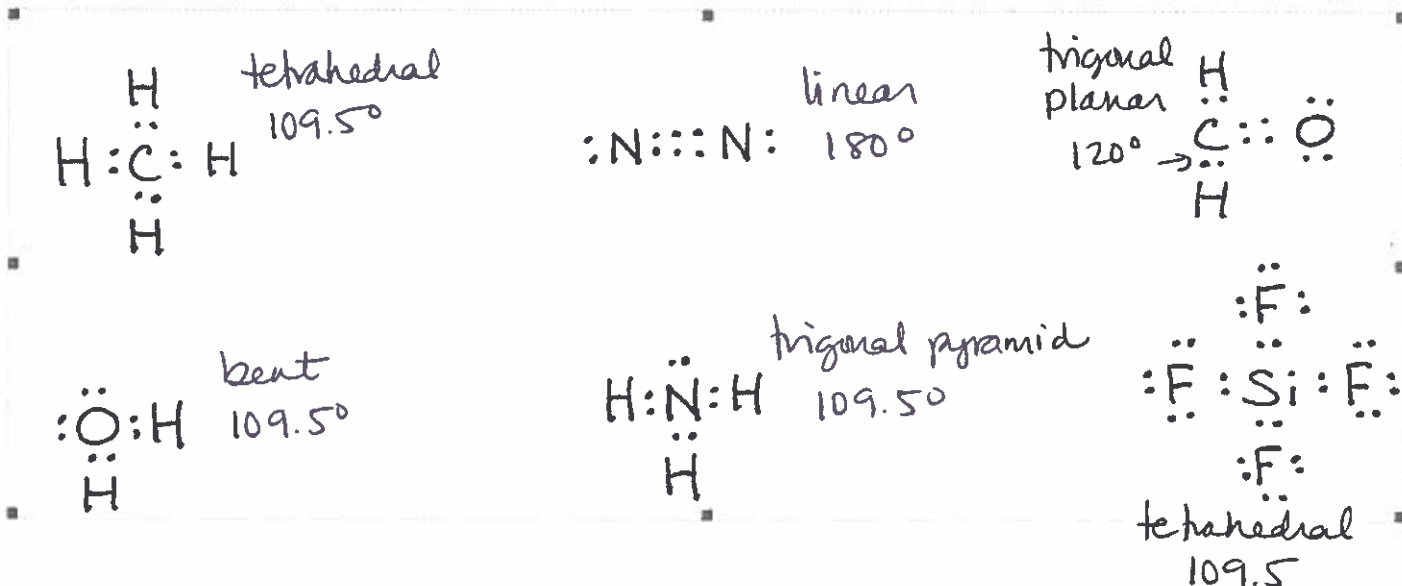 H
H :C: H
H
tetrahedral
109.5°
:N:::N:
linear
180°
trigonal
planar
120° →
H
C :: O
H
:O:H
H
bent
109.5°
H:N:H
H
trigonal pyramid
109.5°
:F:
:F :Si :F:
:F:
tetrahedral
109.5